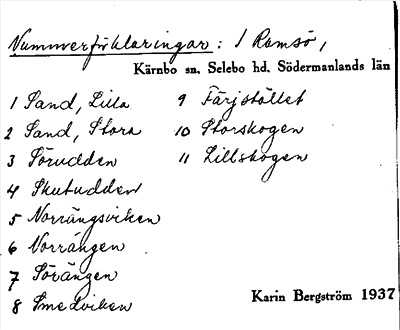 Nummerförklaringar: I Ramsö,
Kärnbo sn. Selebo hd. Södermanlands län
1 Sand, Lilla
2 Sand, Stora
3 Sörudden
4 Skutudden
5 Norrängsviken
6 Norrängen
7 Sörängen
8 Smedviken
9 Färjstället
10 Storskogen
11 Lillskogen
Karin Bergström 1937